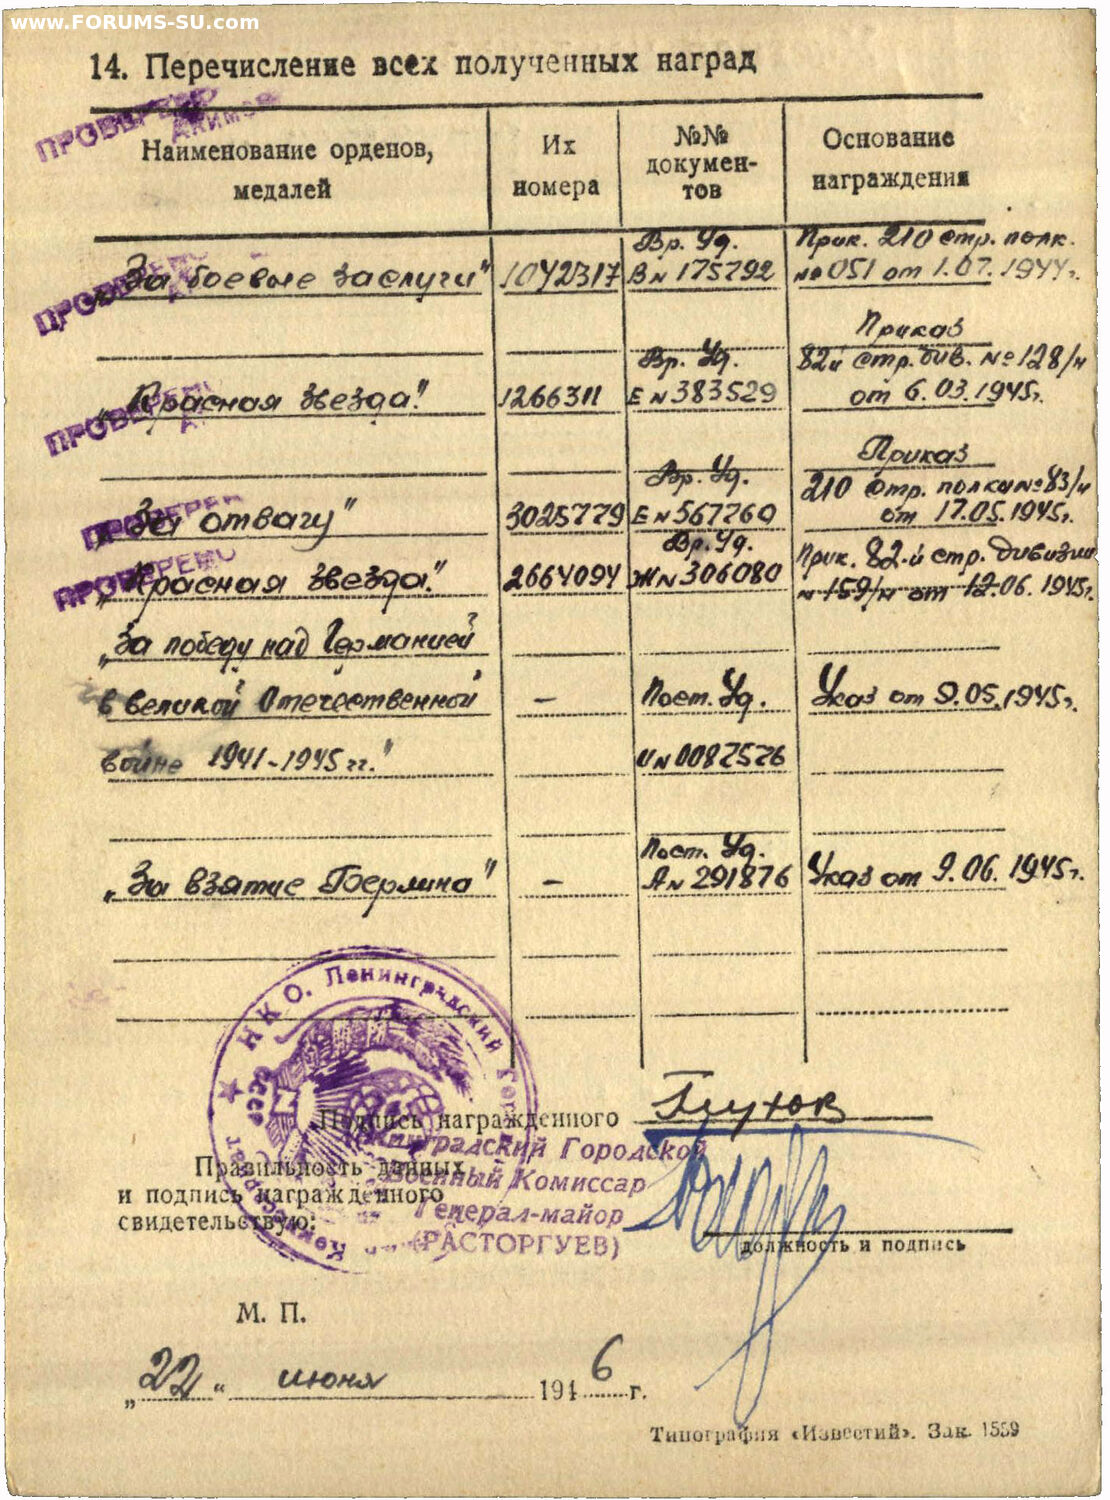 www.FORUMS-SU.com
14. Перечисление всех полученных наград
ПРОВЕРЕНО
Наименование орденов, медалей
Их номера
№№ документов
Основание награждения
ПРОВЕРЕНО
Вр. Уд.
Прик. 210 стр. полк.
„За боевые заслуги" 1042317 В № 175792 №051 от 1.07.1944г.
Приказ
Вр. Уд. 82й стр. див. №128/н
ПРОВЕРЕНО
„Красная звезда." 1266311 Е № 383529 от 6.03.1945г.
Приказ
Вр. Уд. 210 стр. полка №83/н
ПРОВЕРЕНО
„За отвагу" 3025779 Е № 567760 от 17.05.1945г.
Вр. Уд. Прик. 82-й стр. дивизии
ПРОВЕРЕНО
„Красная звезда." 2664094 Ж № 306080 № 159/н от 12.06.1945г.
„За победу над Германией
в Великой Отечественной – Пост. Уд. Указ от 9.05.1945г.
войне 1941-1945 гг." И № 0087576
Пост. Уд.
„За взятие Берлина" – А № 291876 Указ от 9.06.1945г.
НКО. Ленинградский
СССР
Подпись награжденного Глухов
Городской
Военный Комиссар
Генерал-майор
(РАСТОРГУЕВ)
Правильность данных
и подпись награжденного
свидетельствую:
должность и подпись
М. П.
„22" июня 1946 г.
Типография «Известий». Зак. 1559